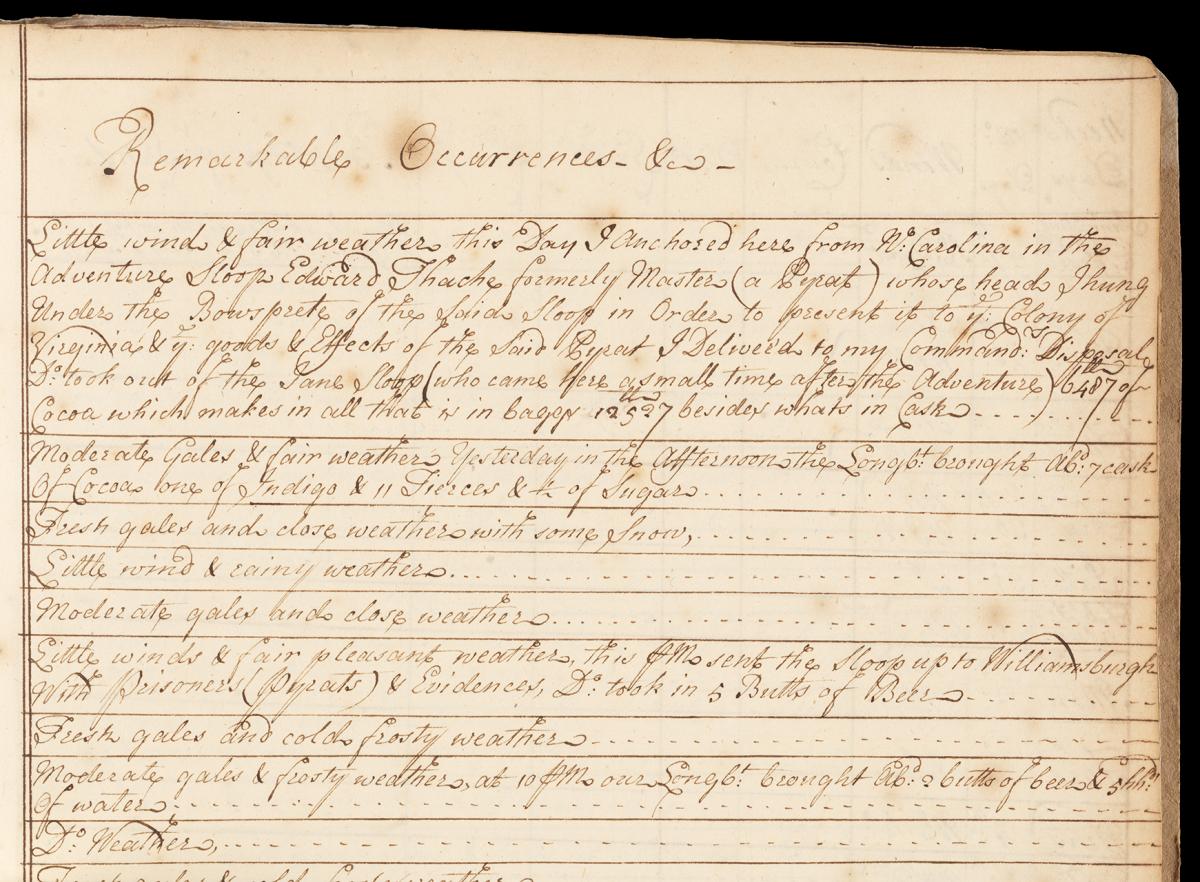 Remarkable Occurrences - &c -
Little wind & fair weather this Day I Anchored here from No: Carolina in the
Adventure Sloop Edward Thache formerly Master (a Pyrat) whose head I hung
Under the Bowsprete of the Said Sloop in Order to present it to ye: Colony of
Virginia & ye: goods & Effects of the Said Pyrat I Deliver'd to my Commandrs: Disposal
Do: took out of the Jane Sloop (who came here a small time after the Adventure) 6487 lb of
Cocoa which makes in all that is in baggs 12537 lb besides whats in Cask
Moderate Gales & fair weather Yesterday in the Affternoon the Longbt: brought Abd: 7 cask
Of Cocoa one of Indigo & 11 Tierces & ½ of Sugar
Fresh gales and close weather with some Snow,
Little wind & rainy weather
Moderate gales and close weather
Little winds & fair pleasant weather, this PM sent the Sloop up to Williamsburgh
With Prisoners (Pyrats) & Evidences, Do: took in 5 Butts of Beer
Fresh gales and cold frosty weather
Moderate gales & frosty weather, at 10 AM our Longbt: brought Abd: 2 butts of beer & 5 hhds:
Of water
Do: Weather,